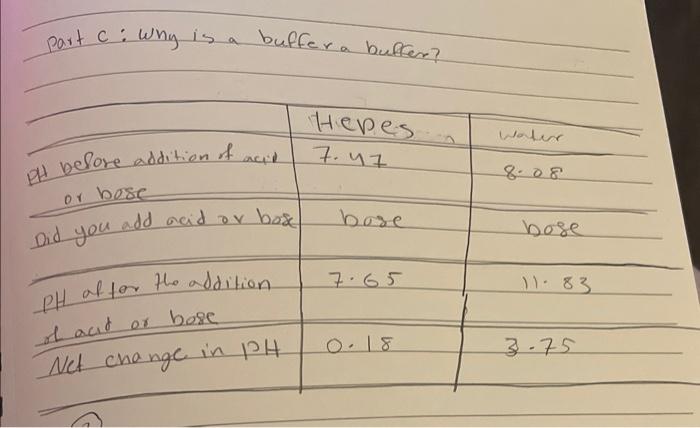 Part C: Why is a buffer a buffer?
Hepes water
PH before addition of acid 7.47 8.08
or base
Did you add acid or base base base
PH after the addition 7.65 11.83
of acid or base
Net change in PH 0.18 3.75